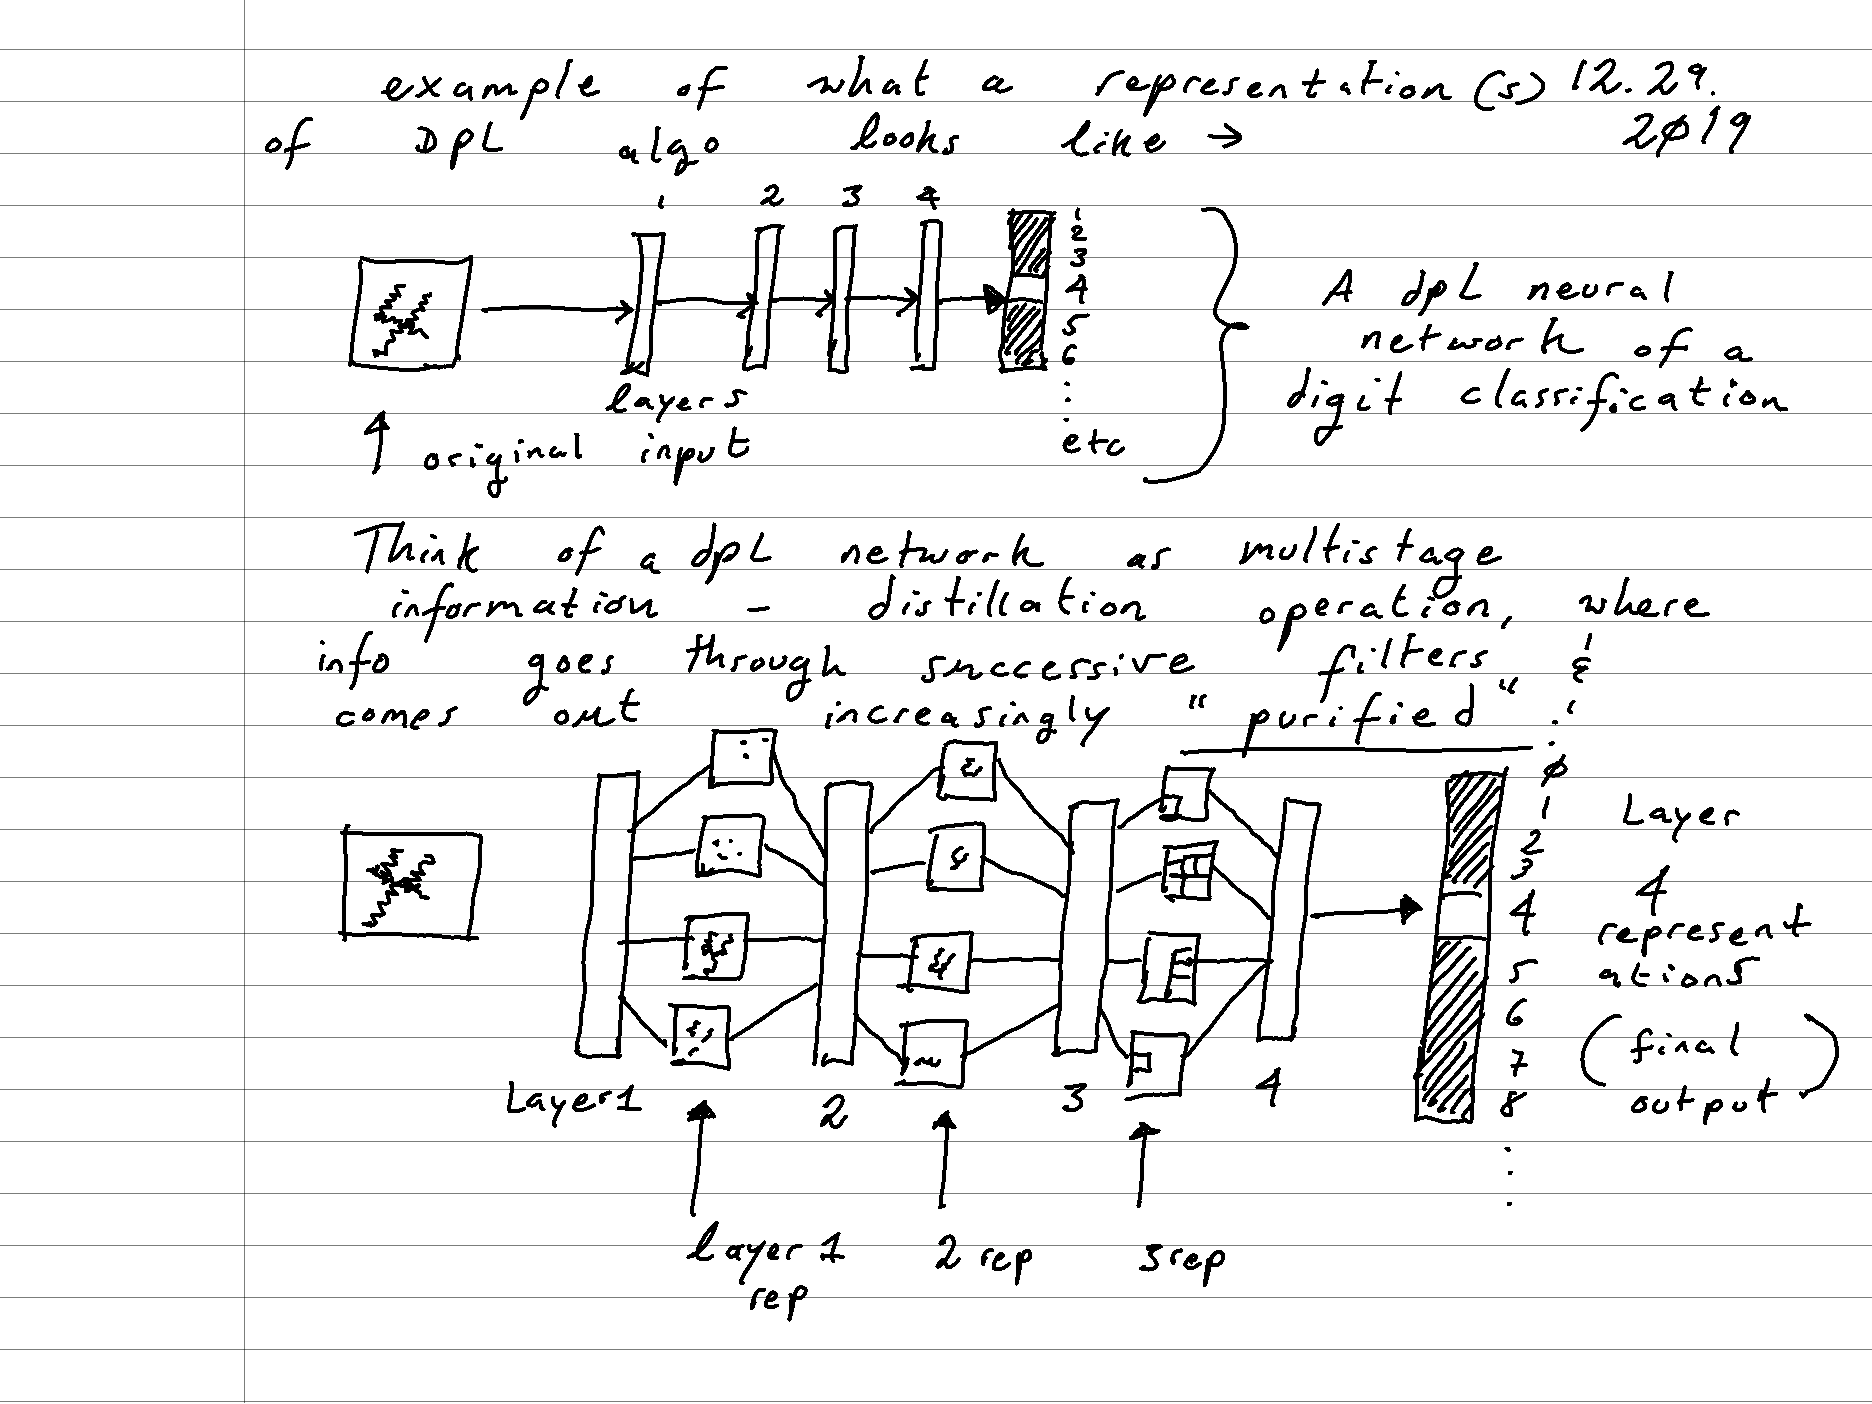 example of what a representation(s) 12.29.
of DPL algo looks like → 2019
1 2 3 4
1
2
3
4
5
6
etc
A dpL neural
network of a
digit classification
layers
original input
Think of a dpL network as multistage
information - distillation operation, where
info goes through successive filters &
comes out increasingly "purified"
0
1
2
3
4
5
6
7
8
Layer
4
represent
ations
(final
output)
Layer 1 2 3 4
layer 1 2 rep 3 rep
rep